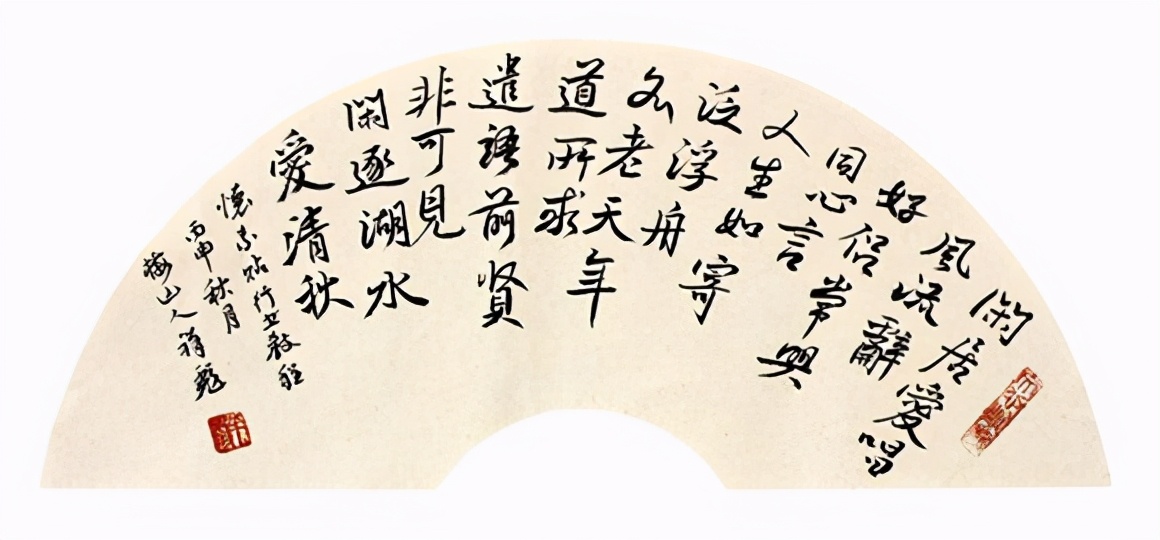 閑居愛唱
風流辭
好侶常興
同心言
人生如寄
泛浮舟
老天年
道所求
遣語前賢
非可見
閑逐湖水
愛清秋
懷素帖行書教程
丙申秋月
梅山人蔣